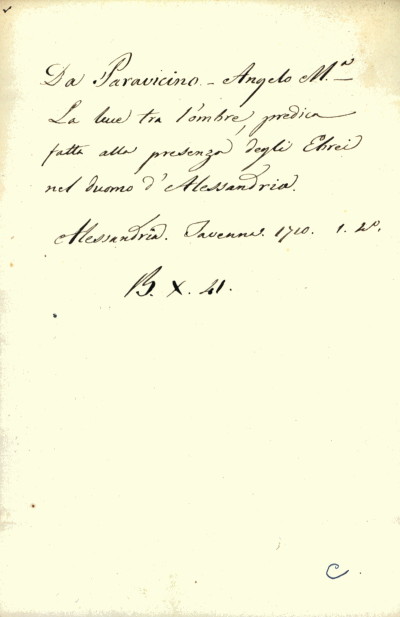 Da Paravicino - Angelo M.ª
La luce tra l'ombre, predica
fatta alla presenza degli Ebrei
nel duomo d'Alessandria.
Alessandria. Tavenna. 1710. 1. 4º.
B. X. 41.
C.